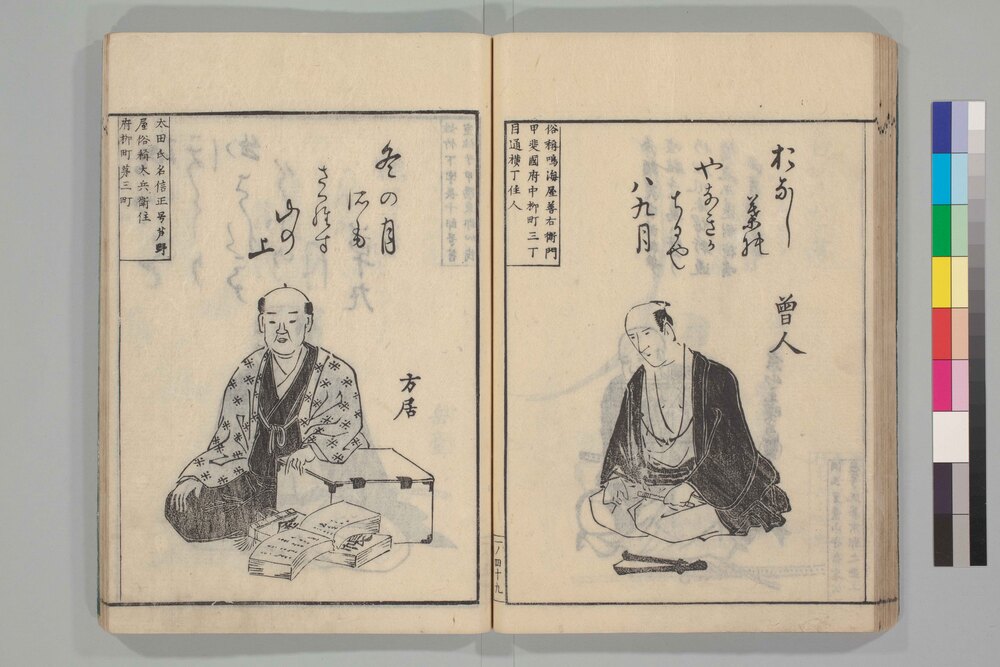 俗稱鳴海屋善右衛門
甲斐國府中柳町三丁
目通横丁住人
おなし
葉の
やなきか
ちるや
八九月
曽人
一ノ四十九
太田氏名信正号芦野
屋俗稱太兵衛住
府柳町第三町
冬の月
さはす
山の
上
方居